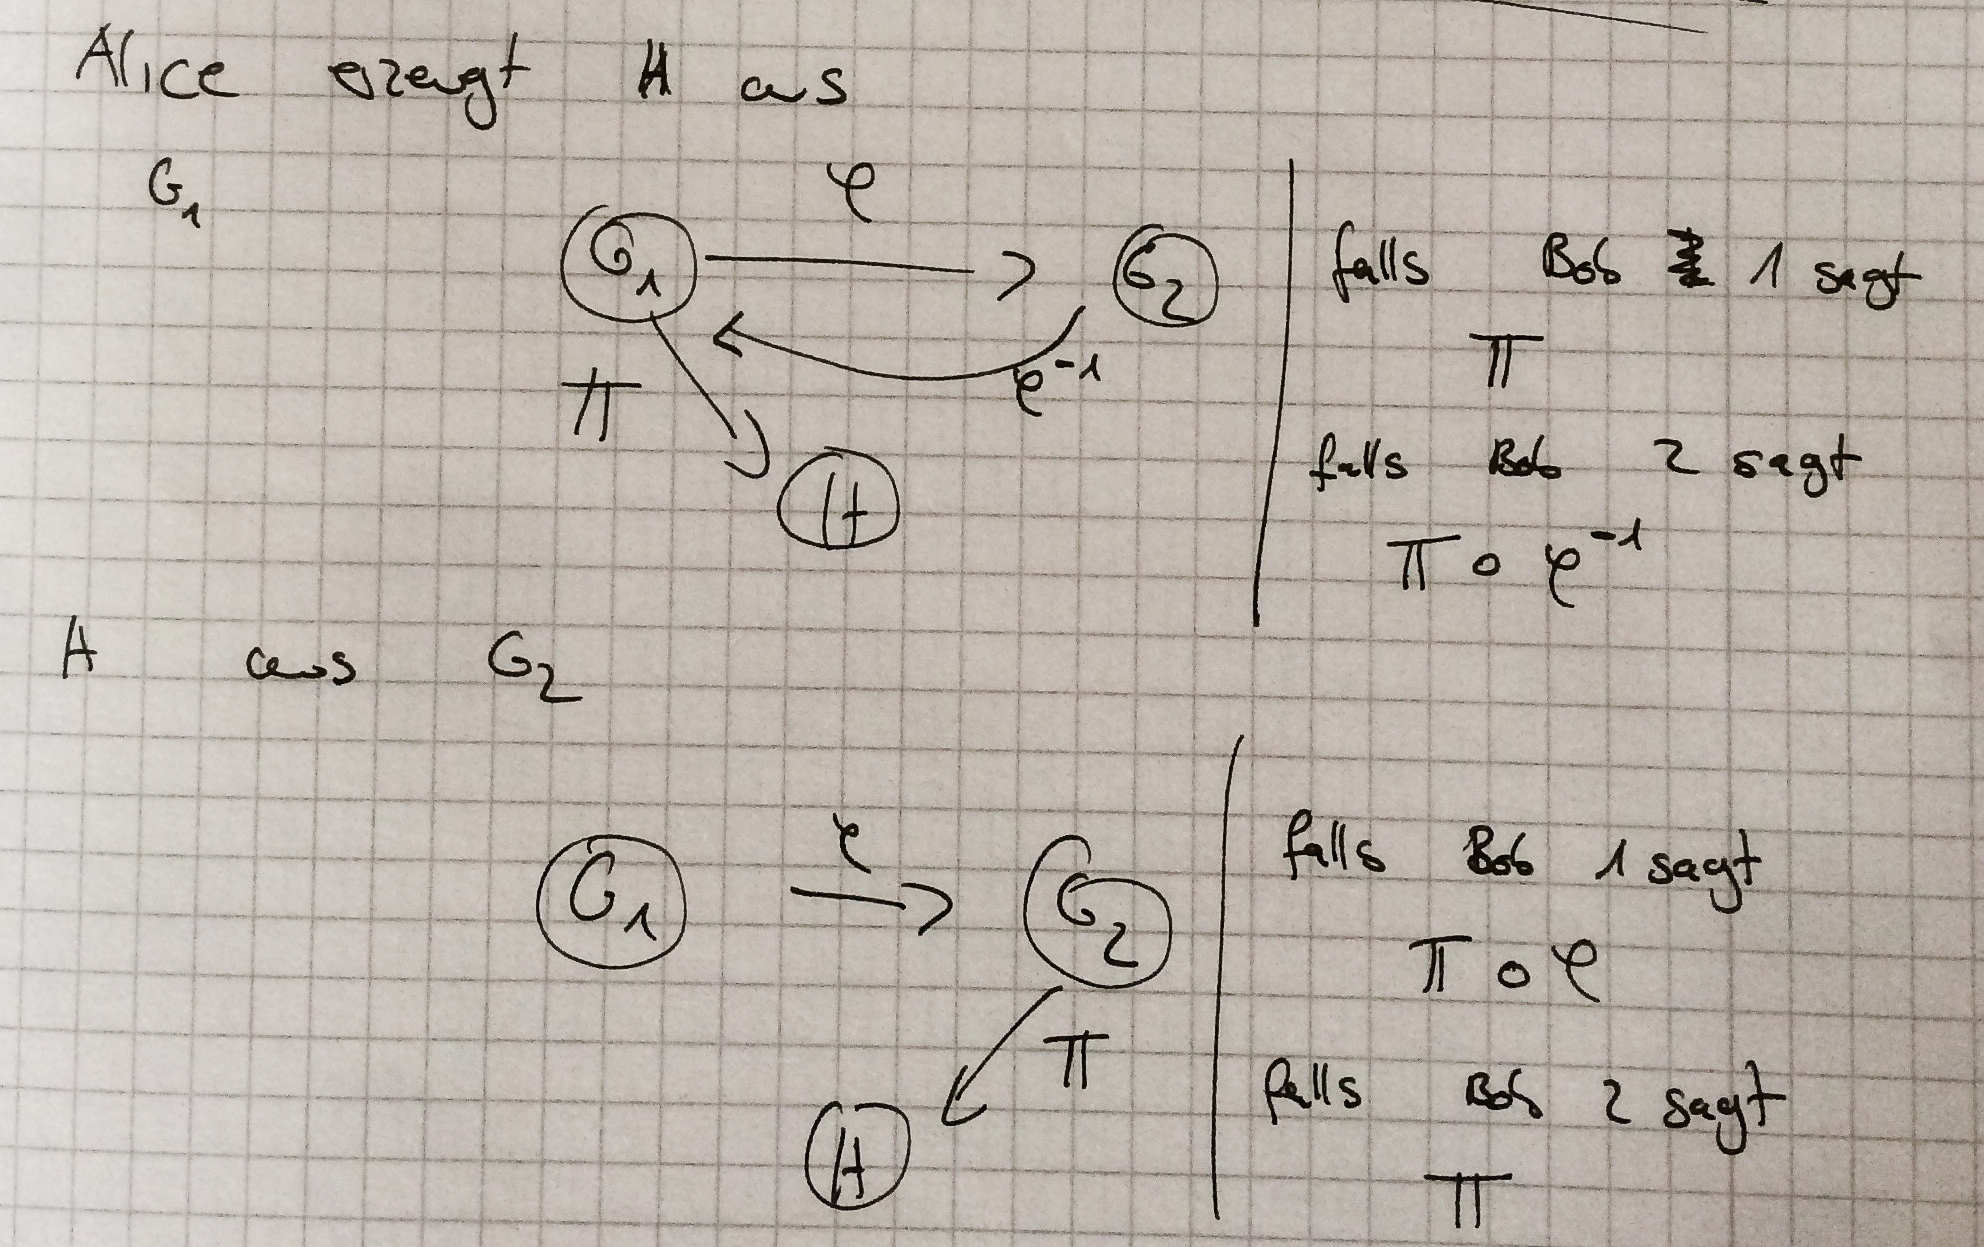 Alice erzeugt H aus
G₁
φ
G₁
G₂
φ⁻¹
π
H
falls Bob 1 sagt
π
falls Bob 2 sagt
π ∘ φ⁻¹
H aus G₂
φ
G₁
G₂
π
H
falls Bob 1 sagt
π ∘ φ
falls Bob 2 sagt
π